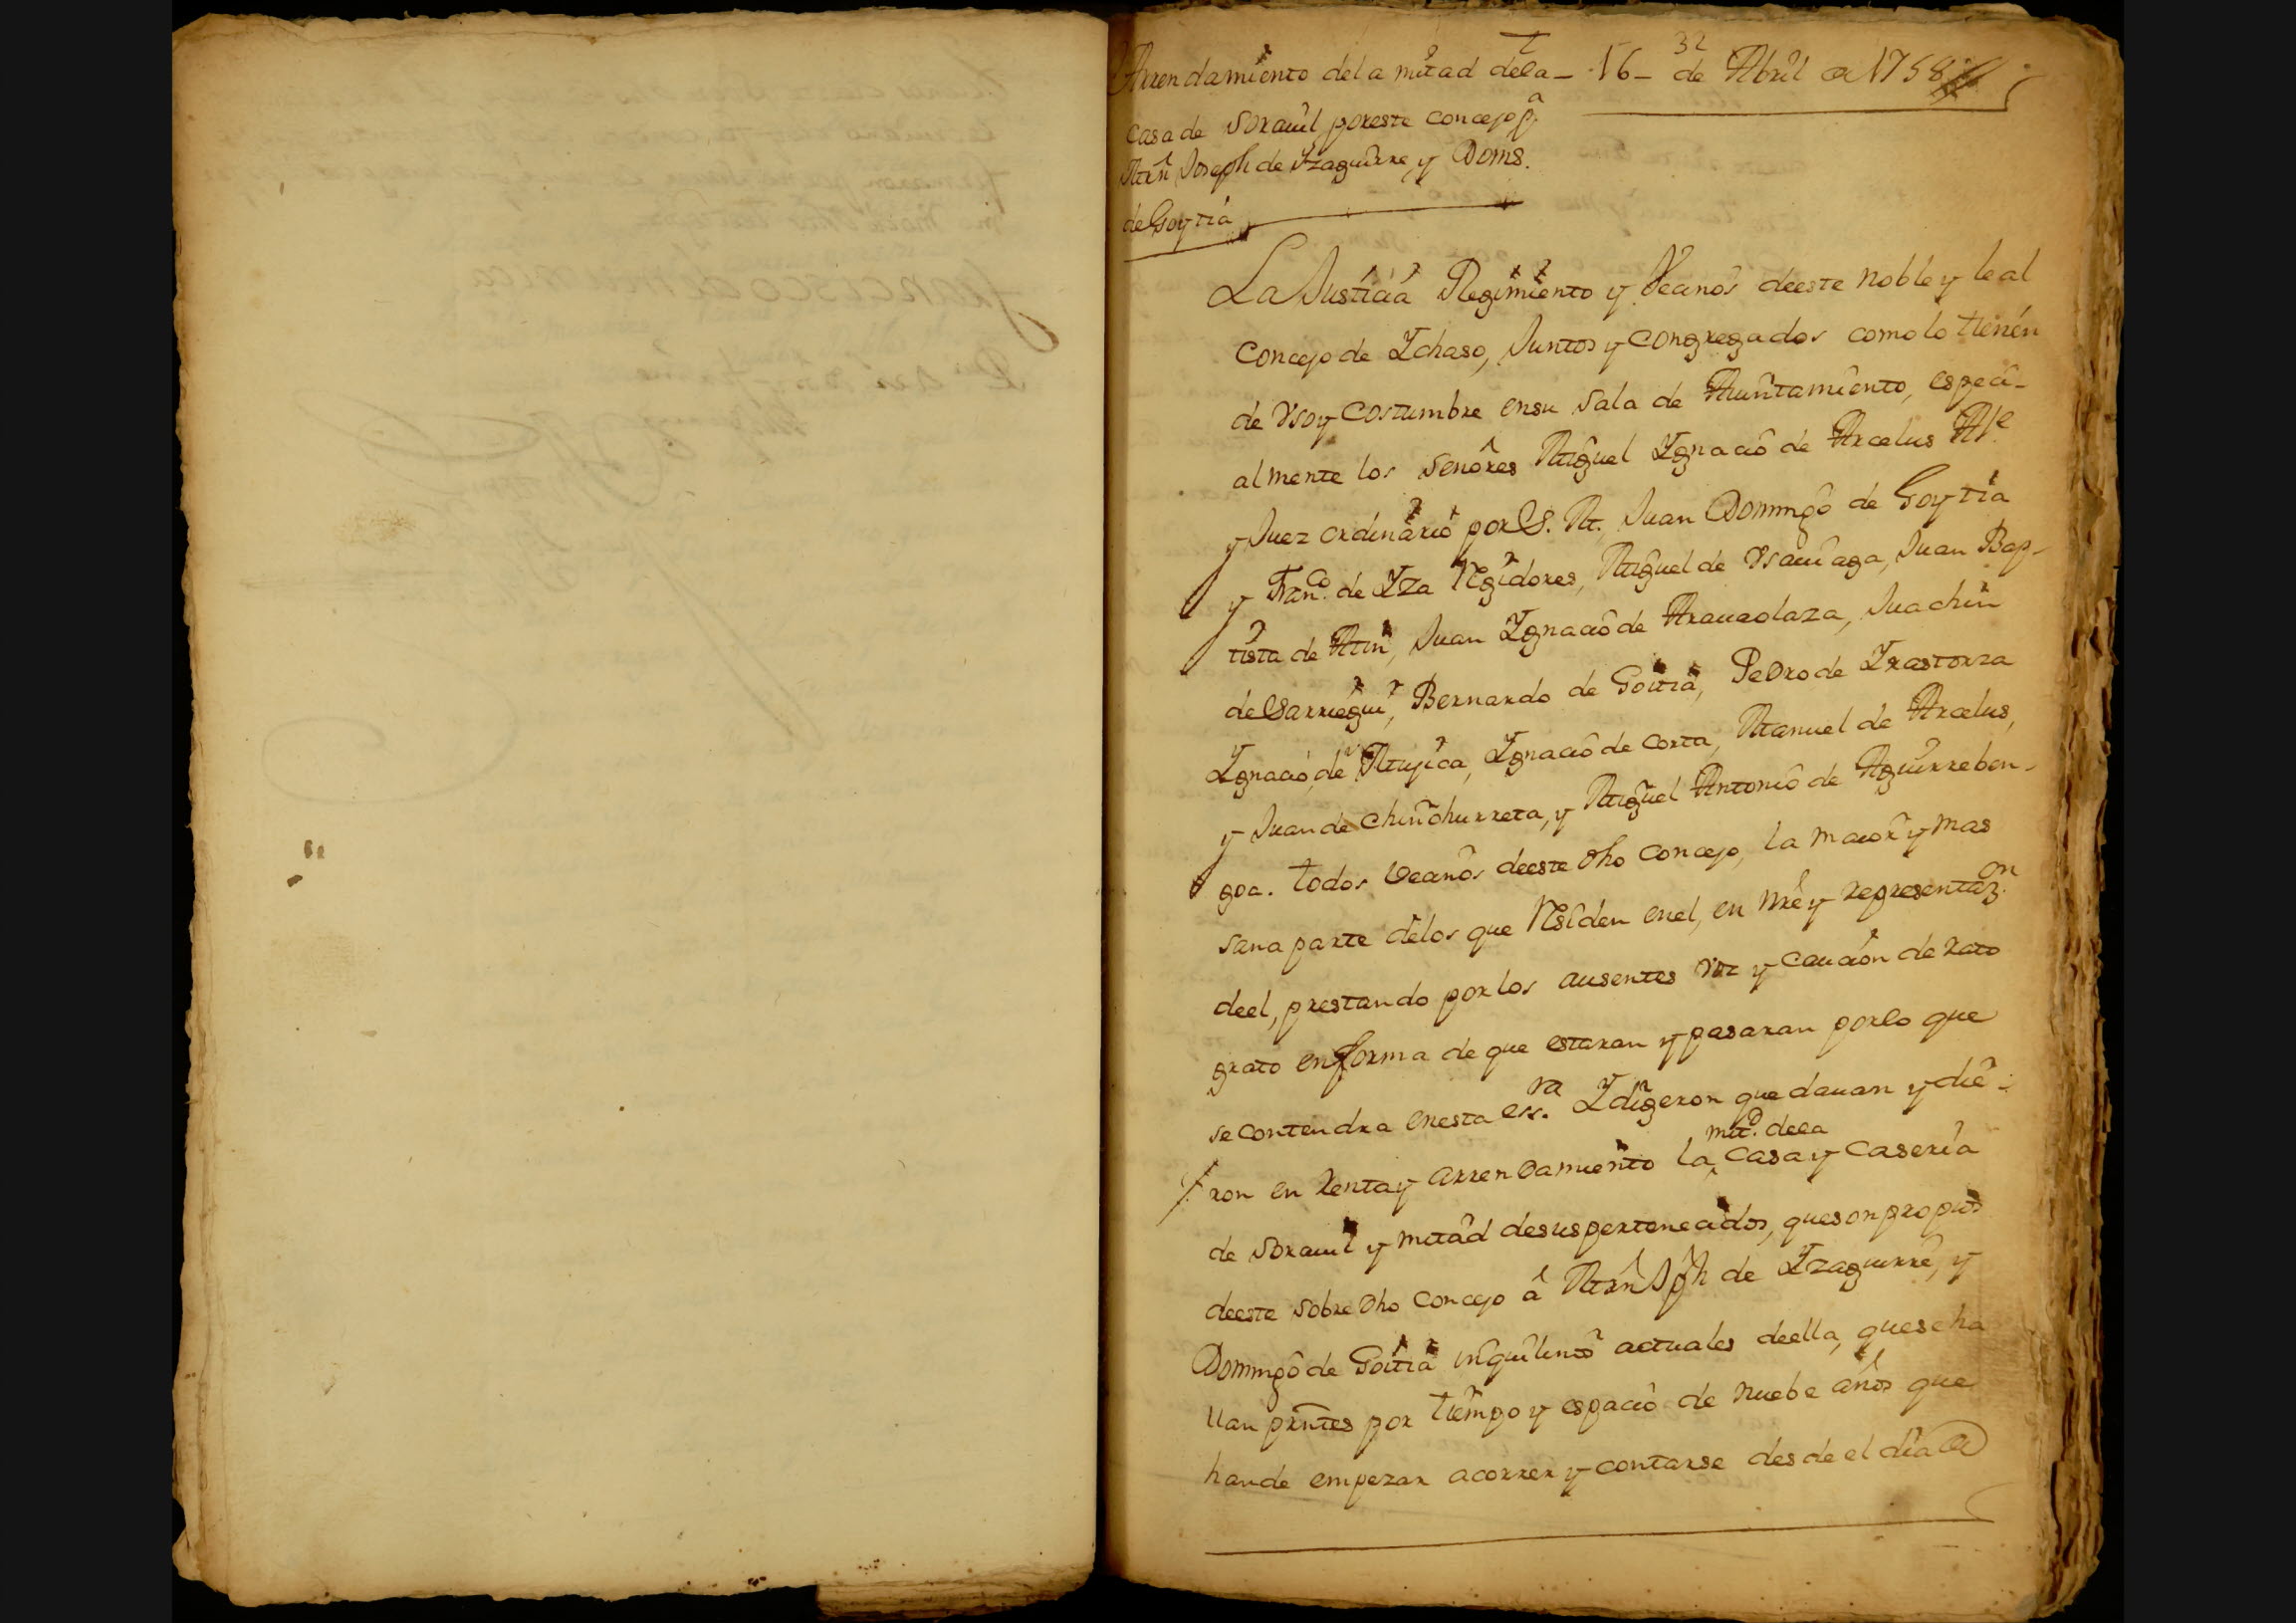 32
Arrendamiento dela mitad dela_ 16_ de Abril de 1758
casa de Sorauil, por este concejo pª
Mrñ Joseph de Yzaguirre, y Doms.
de Goytia
La Justicia Regimiento y Vecinos deeste noble y leal
concejo de Ychaso, Juntos y congregados como lo tienen
de Vso y costumbre ensu sala de Aiuntamiento, especi_
almente los senores Miguel Ygnacio de Arcelus Alᵉ
y Juez ordinario por S. M., Juan Domingo de Goytia
y Franᶜᵒ. de Yza Regidores, Miguel de Vsauiaga, Juan Bap_
tista de Min, Juan Ygnacio de Araueolaza, Juachin
de Sarriegui, Bernardo de Goitia, Pedro de Yrastorza
Ygnacio de Mujica, Ygnacio de Corta, Manuel de Arcelus,
y Juan de Chinchurreta, y Miguel Antonio de Aguirreben_
goa. todos Vecinos deeste dho concejo, la maior y mas
sana parte delos que Residen enel, en nrē y representazᵒⁿ.
deel, prestando por los ausentes voz y caucion de rato
grato enforma de que estaran y pasaran porlo que
se contendra enesta essʳᵃ. Y digeron que dauan y die_
mitᵈ. dela
ron en Renta y arrendamiento la casa y caseria
de Sorauil y mitad desus pertenecidos, queson propios
deeste sobre dho concejo â Mrñ Jph de Yzaguirre, y
Domingo de Goitia inquilinos actuales deella, quese ha
llan prntes por tiempo y espacio de nuebe años que
hande empezar acorrer y contarse desde el dia de